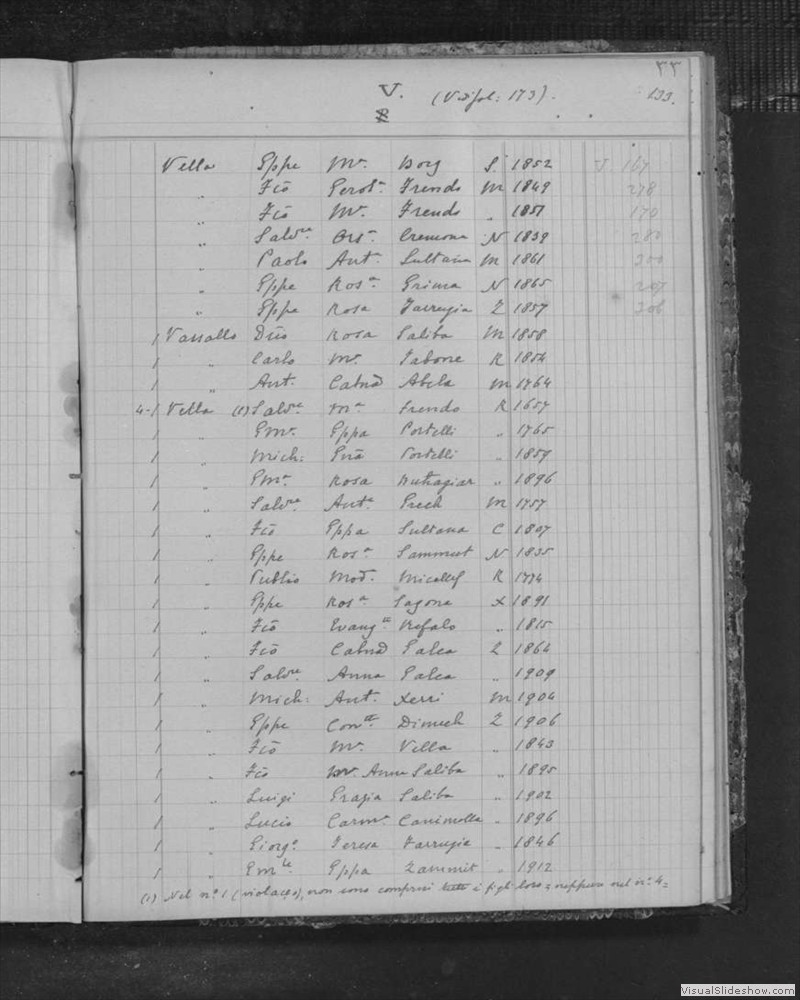 ٣٣
V. (V. fol: 173). 133.
Vella Gppe Mª Borg S. 1852 J 167
„ Fcõ Gerolª Frendo M 1849 278
„ Fcõ Mª Frendo „ 1851 170
„ Salvre Orsª Cremona N 1839 280
„ Paolo Antª Sultana M 1861 300
„ Gppe Rosª Grima N 1865 207
„ Gppe Rosa Farrugia Z 1857 306
1 Vassallo Rosa Saliba M 1858
1 „ Carlo Mª Tabone R 1854
1 „ Ant. Catnã Abela M 1764
4-1 Vella (1) Salvre Mª Frendo R 1657
1 „ Gppa Portelli „ 1765
1 „ Mich: Portelli „ 1859
1 „ Rosa Buttagiar „ 1896
1 „ Salvre Antª Grech M 1757
1 „ Fcõ Gppa Sultana C 1807
1 „ Gppe Rosª Sammut N 1835
1 „ Publio Mod. Micallef R 1774
1 „ Gppe Rosª Sagona X 1891
1 „ Fcõ Evangta Refalo „ 1815
1 „ Fcõ Catnã Galea Z 1864
1 „ Salvre Anna Galea „ 1909
1 „ Mich: Ant. Xerri M 1904
1 „ Gppe Contta Dimech Z 1906
1 „ Fcõ Mª Vella „ 1843
1 „ Fcõ Mª Anna Saliba „ 1895
1 „ Luigi Grazia Saliba „ 1902
1 „ Lucio Carmª Camenolla „ 1896
1 „ Giorgº Teresa Farrugia „ 1846
1 „ Emle Gppa Zammit „ 1912
(1) Nel nº 1 (violaceo), non sono compresi tutti i figli loro; neppure nel nº 4=
VisualSlideshow.com